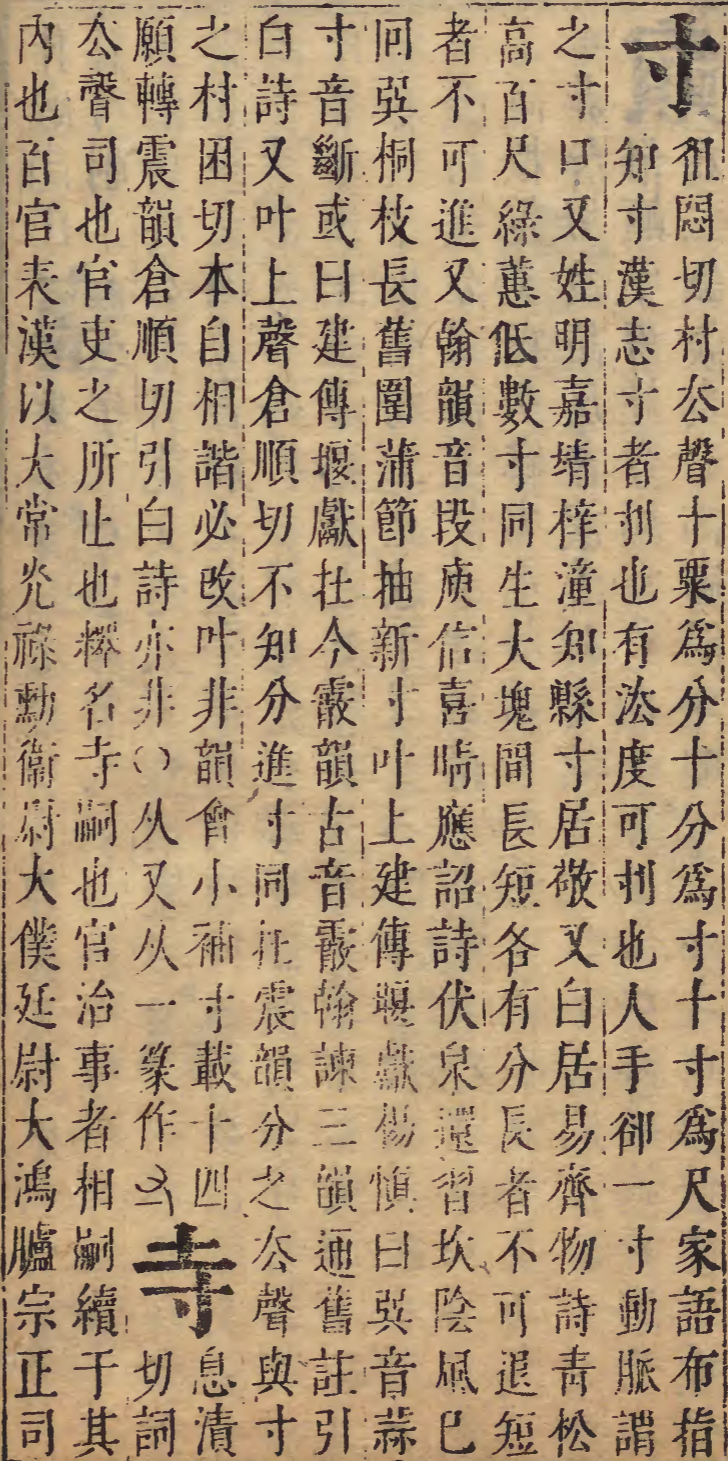 寸徂悶切村厺聲十粟爲分十分爲寸十寸爲尺家語布指
知寸漢志寸者忖也有法度可忖也人手卻一寸動脈謂
之寸口又姓明嘉靖梓潼知縣寸居敬又白居易齊物詩靑松
高百尺綠蕙低數寸同生大塊間長短各有分長者不可退短
者不可進又翰韻音段庾信喜晴應詔詩伏泉還習坎陰風已
回巽桐枝長舊圍蒲節抽新寸叶上建傳堰獻楊愼曰巽音蒜
寸音斷或曰建傳堰獻在今霰韻古音霰翰諫三韻通舊註引
白詩又叶上聲倉順切不知分進寸同在震韻分之厺聲與寸
之村困切本自相諧必改叶非韻會小補寸載十四
願轉震韻倉順切引白詩亦非〇从又从一篆作寺息漬切詞
厺聲司也官吏之所止也釋名寺嗣也官治事者相嗣續于其
內也百官表漢以大常光祿勳衞尉大僕廷尉大鴻臚宗正司